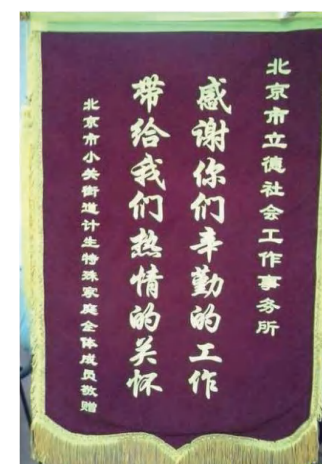 北京市立德社会工作事务所
感谢你们辛勤的工作
带给我们热情的关怀
北京市小关街道计生特殊家庭全体成员敬赠